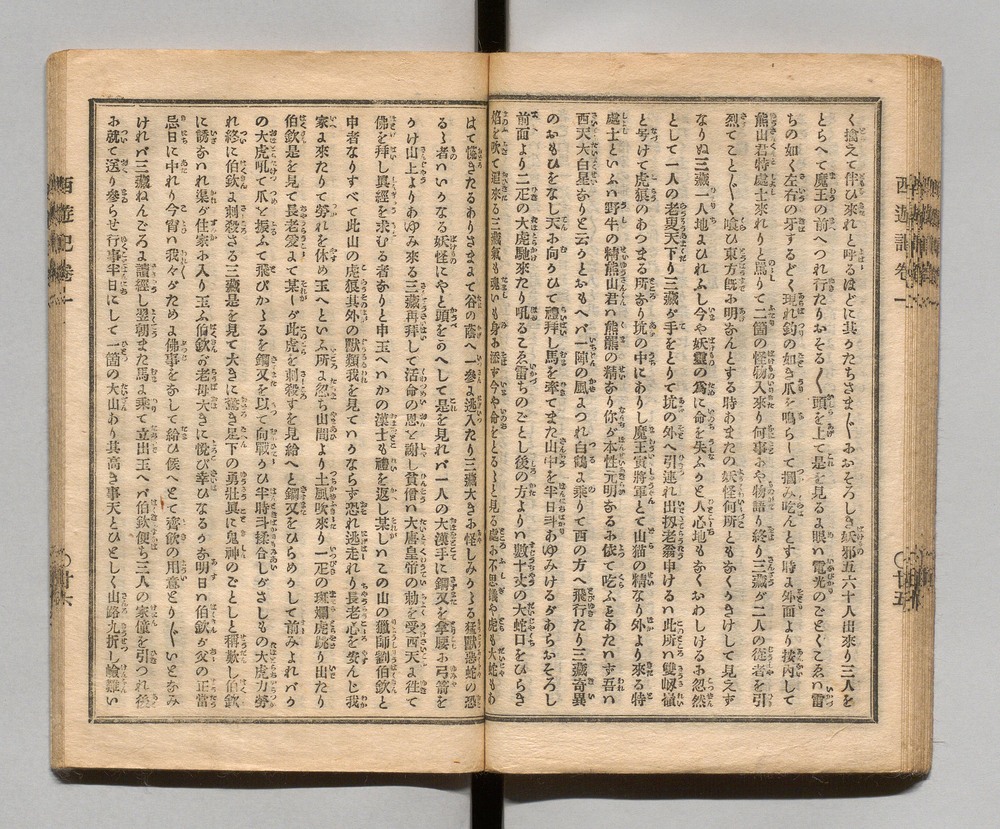 西遊記卷一
〇廿五
く擒えて伴ひ來れと呼るほどに其かたちさま〴〵おそろしき妖邪五六十人出來り三人を
とらへて魔王の前へつれ行たりおそる〳〵頭を上て是を見るよ眼ハ電光のごとくこゑハ雷
ちの如く左右の牙するどく現れ釣の如き爪を鳴らして掴み吃んとす時よ外面より
熊山君特處士來れりと罵りて二箇の怪物入來り何事おや物語り終り三藏が二人の從者を引
烈てこと〴〵く喰ひ東方既お明なんとする時あまたの妖怪何所ともなくうきけして見えず
なりぬ三藏ハ人地よひれふし今や妖靈の爲に命を失ふかと人心地もなくおわしけるお忽然
として一人の老叟天下り三藏が手をとりて坑の外へ引連れ出扨老翁申けるハ此所ハ雙嶺
と号けて虎狼のあつまる所なり坑の中にありし魔王寅將軍とて山猫の精なり外より來る特
處士といふハ野牛の精熊山君ハ熊羆の精なり你が本性元明なるお依て吃ふことあたハず吾ハ
西天太白星なりと云かとおもへバ一陣の風よつれ白鶴よ乘りて西の方へ飛行たり三藏奇異
のおもひをなし天お向ひて禮拜し馬を牽てまた山中を半日斗あゆみけるがあらおそろし
前面より二疋の大虎馳來たり吼るこゑ雷ちのごとし後の方よりハ數十丈の大蛇口をひらき
焰を吹て追來る三藏氣も魂いも身お添す今や命をとらると見る處お不思議や虎も大蛇もあ
はて慌きたるありさまよて谷の蔭へ一參よ逃入たり三藏大きお怪しみかゝる猛獸惡蛇の恐
るゝ者ハいかなる妖怪にやと頭をあへして是を見れバ一人の大漢手に鋼叉を拿腰お弓箭を
かけ山上よりあゆみ來る三藏再拜して活命の恩を謝し貧僧ハ大唐皇帝の勅を受西天よ往て
佛を拜し眞經を求むる者なりと申玉へハかの漢士も禮を返し某しハこの山の獵師劉伯欽と
申者なりすべて此山の虎狼其外の獸類我を見てハかならす恐れ逃走れり長老心を安んじ我
家よ來たりて勞れを休め玉へといふ所よ忽ち山間より土風吹來り一疋の斑斕虎跳り出たり
伯欽是を見て長老愛よて某しが此虎を刺殺すを見給へと鋼叉をひらめかして前みよれバか
の大虎吼て爪を振ふて飛びかゝるを鋼叉を以て向戰かひ半時斗揉合しがさしもの大虎力勞
れ終に伯欽よ刺殺さる三藏是を見て大きに驚き足下の勇壯眞に鬼神のごとしと稱歎し伯欽
に誘なハれ渠が住家お入り玉ふ伯欽が老母大きに悅び幸ひなるかな明日ハ伯欽が父の正當
忌日に中れり今宵ハ我々がためよ佛事をなして給ひ候へとて齋飲の用意とり〴〵いとなみ
けれバ三藏ねんごろよ讀經し翌朝また馬よ乘て立出玉へバ伯欽便ち三人の家僮を引つれ後
お就て送り參らせ行事半日にして一箇の大山あり其高き事天とひとしく山路九折し嶮難い
西遊記卷一
〇廿六